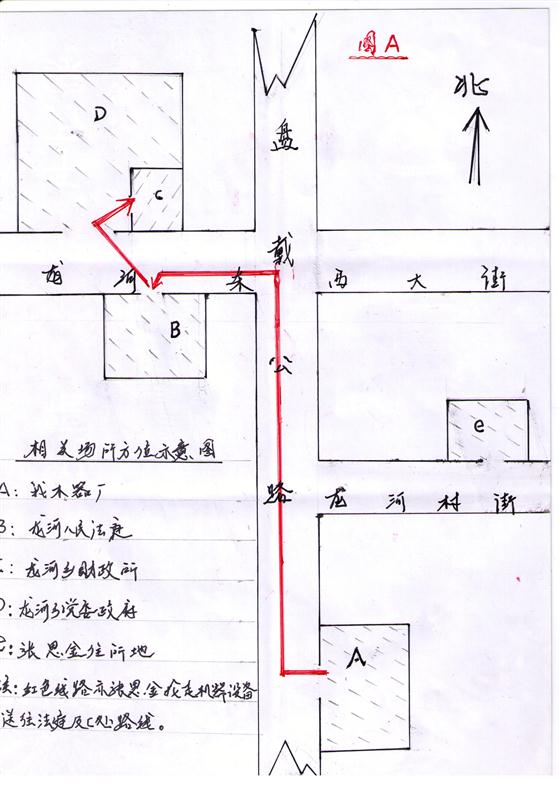 图A
北
D
C
盘
戴
公
路
龙河东西大街
B
e
相关场所方位示意图
龙河村街
A：我木器厂
B：龙河人民法庭
C：龙河乡财政所
D：龙河乡党委政府
e：张思金住所地
A
注：红色线路亦张思金抢走机器设备
送往法庭及C处路线。